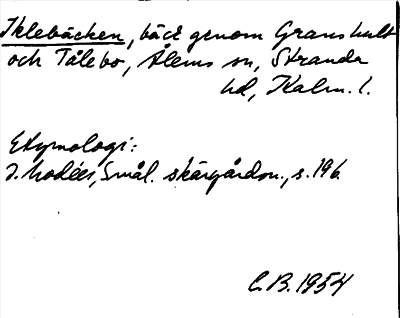 Iklebäcken, bäck genom Granshult
och Tålebo, Ålems sn, Stranda
hd, Kalm. l.
Etymologi:
I. Modéer, Smål. skärgårdsn., s. 196.
C.B. 1954